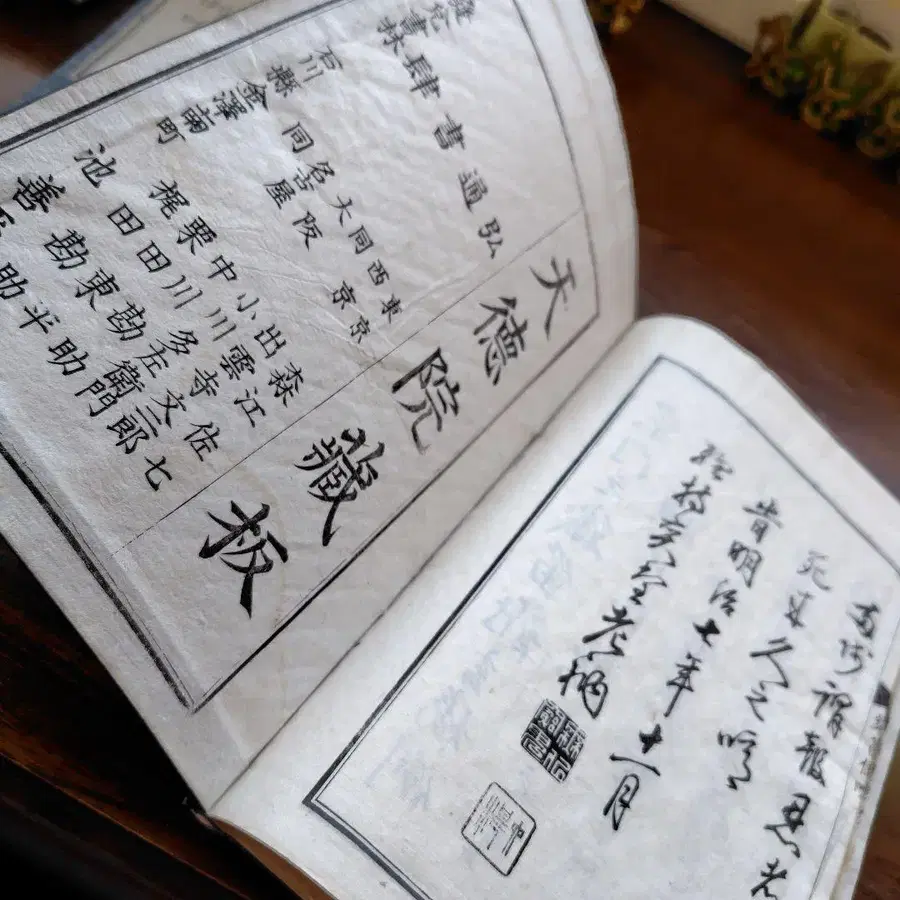 謂報恩者
久之噫
旹明治七年十一月
總持奕堂老衲
天德院藏板
弘通書肆
東京 森江佐七
西京 出雲寺文三郎
同 小川多左衛門
大阪 中川勘助
名古屋 栗田東平
同 梶田勘助
石川縣金澤南町
發兌書林 池善平